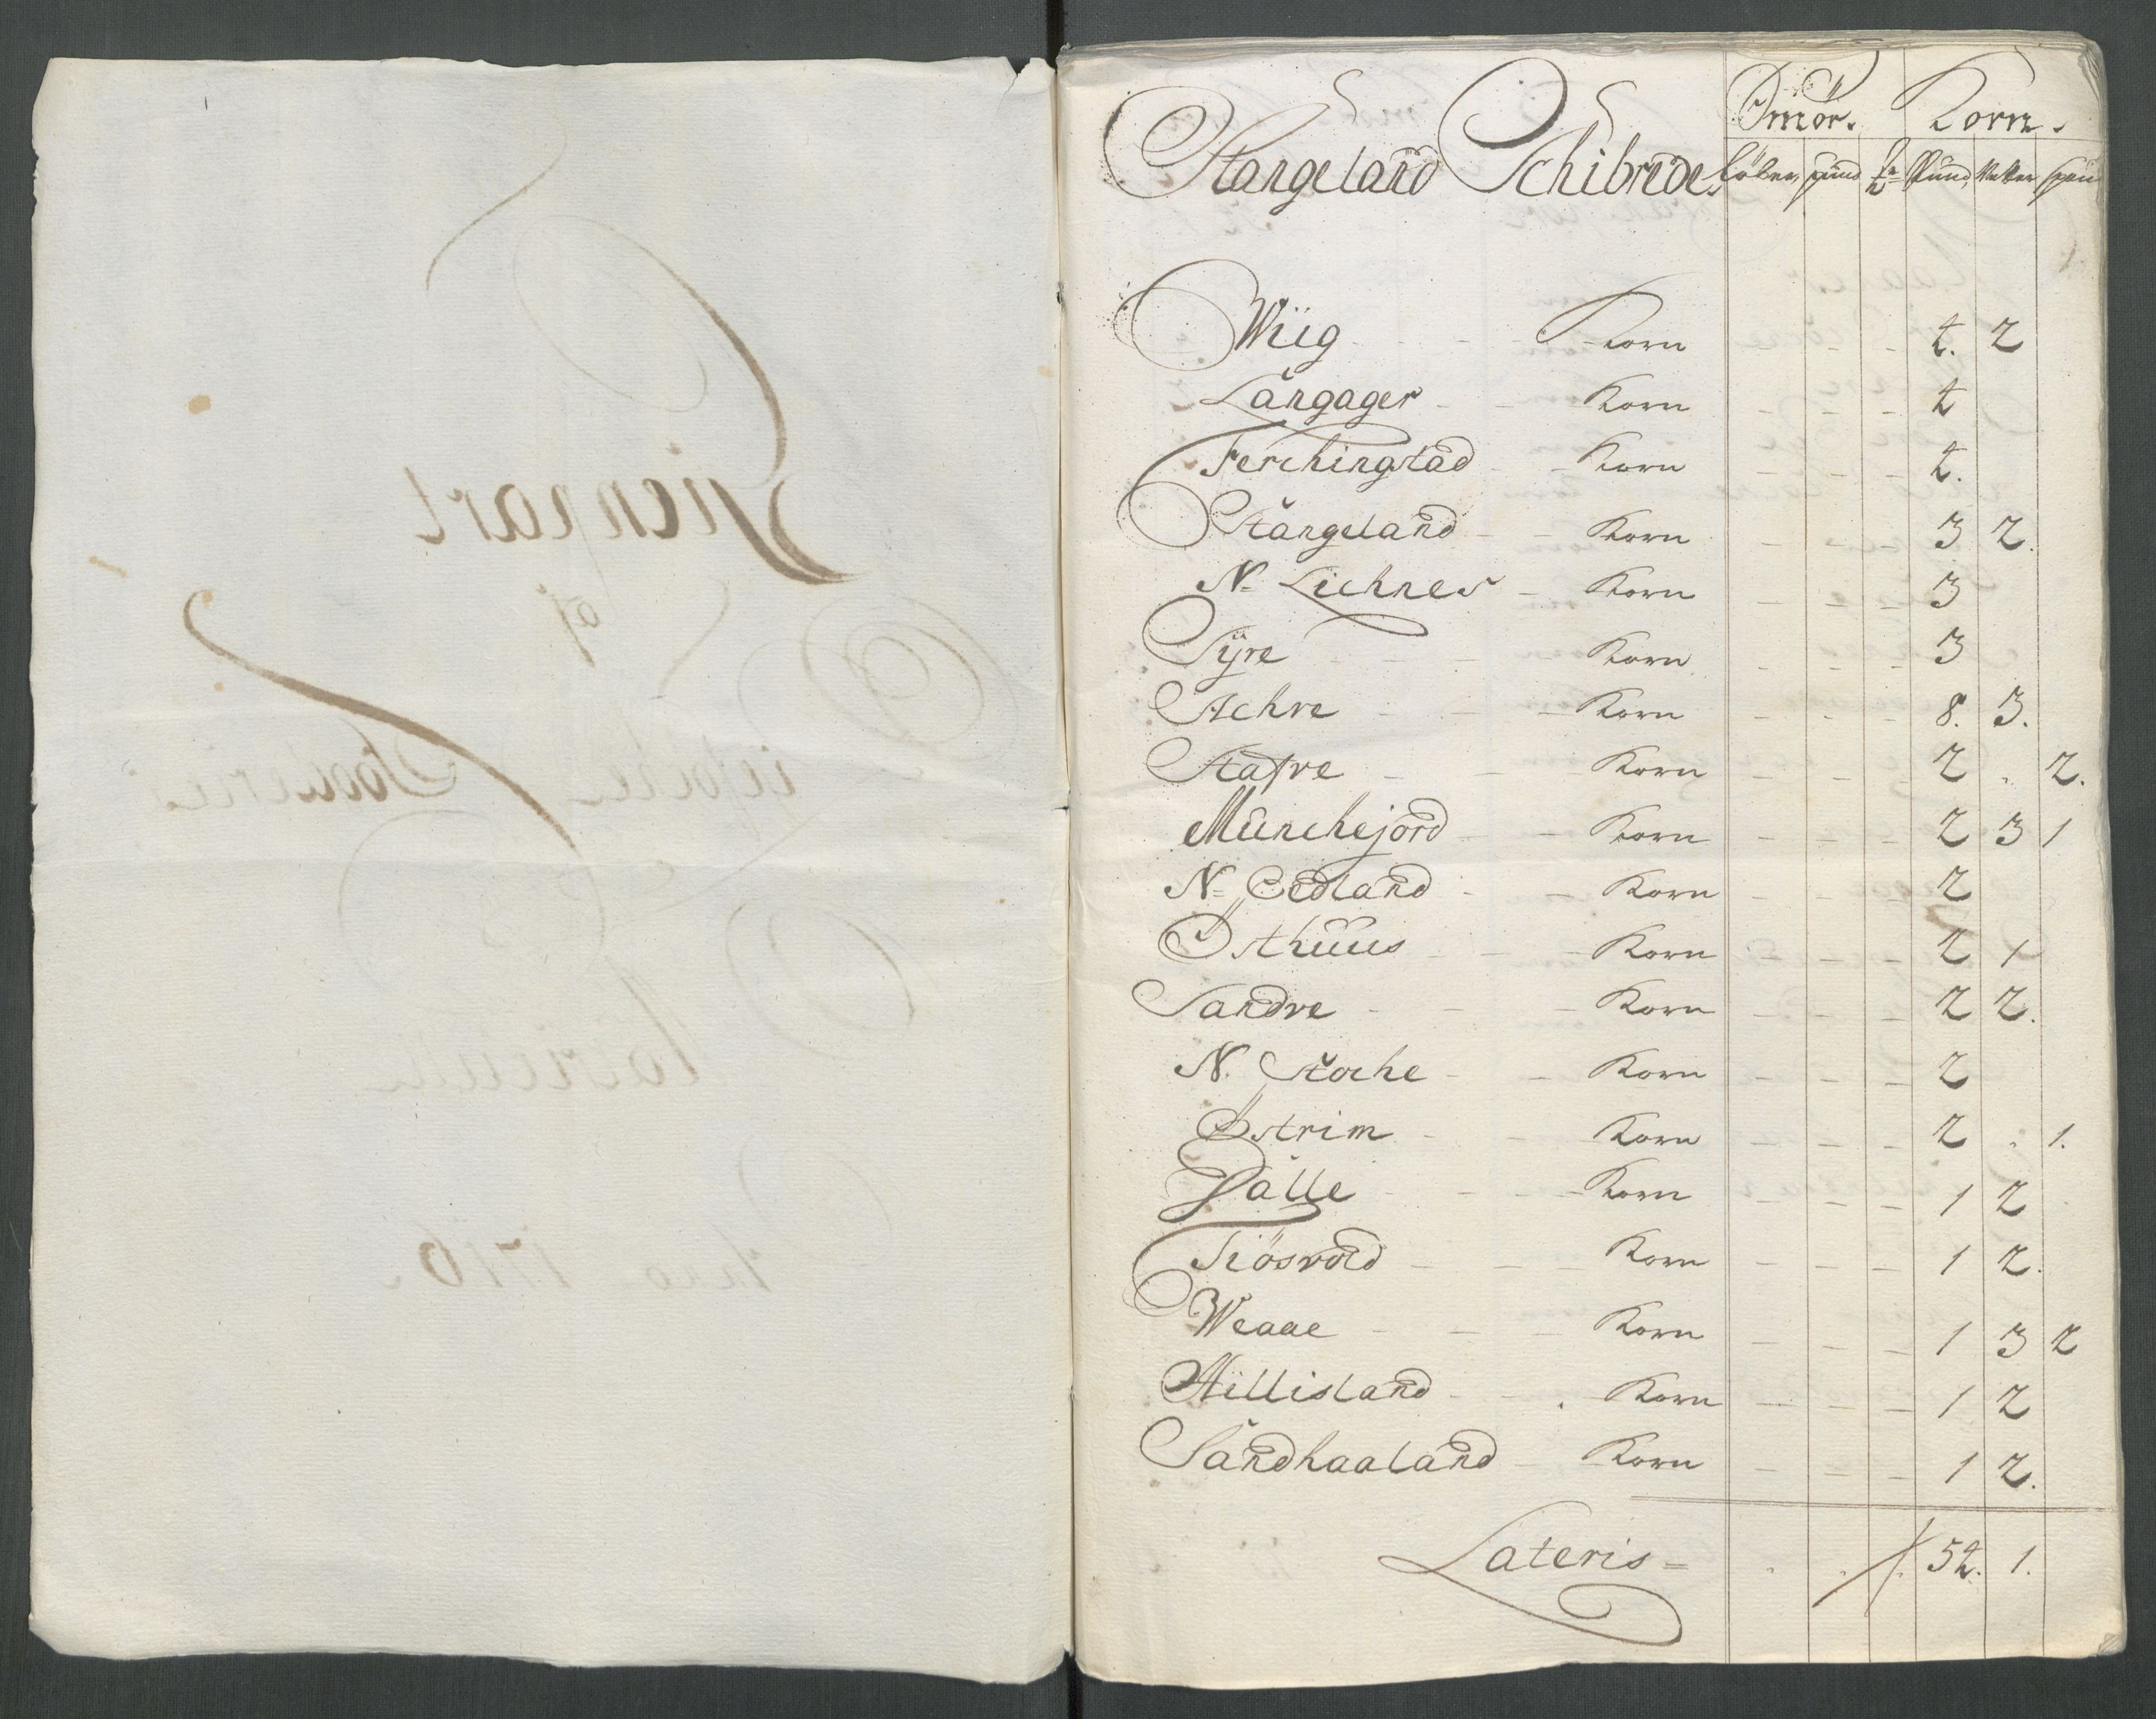 Stangeland Schibrede. Smör. Korn.
löber pund ℔ Pund Vetter span
Wiig - - - Korn - - - 4. 2
Langager - - Korn - - - 4
Ferchingstad - - Korn - - - 4.
Stangeland - - Korn - - - 3 2.
N= Lichnes - Korn - - - 3
Sÿre - - - Korn - - - 3
Achre - - - Korn - - - 8. 3.
Stafre - - - Korn - - - 2 . 2.
Munchejord - - Korn - - - 2 3 1
N= Eedland - - Korn - - - 2
Östhuus - - - Korn - - - 2 1
Sandre - - - Korn - - - 2 2.
N. Stoche - - Korn - - - 2
Östrim - - Korn - - - 2 . 1.
Dalle - - - Korn - - - 1 2
Tiösvold - - - Korn - - - 1 2.
Weaae - - - Korn - - - 1 3 2
Hillisland - - . Korn - - - 1 2
Sandhaaland - Korn - - - 1 2.
Lateris = . . . 54. 1.